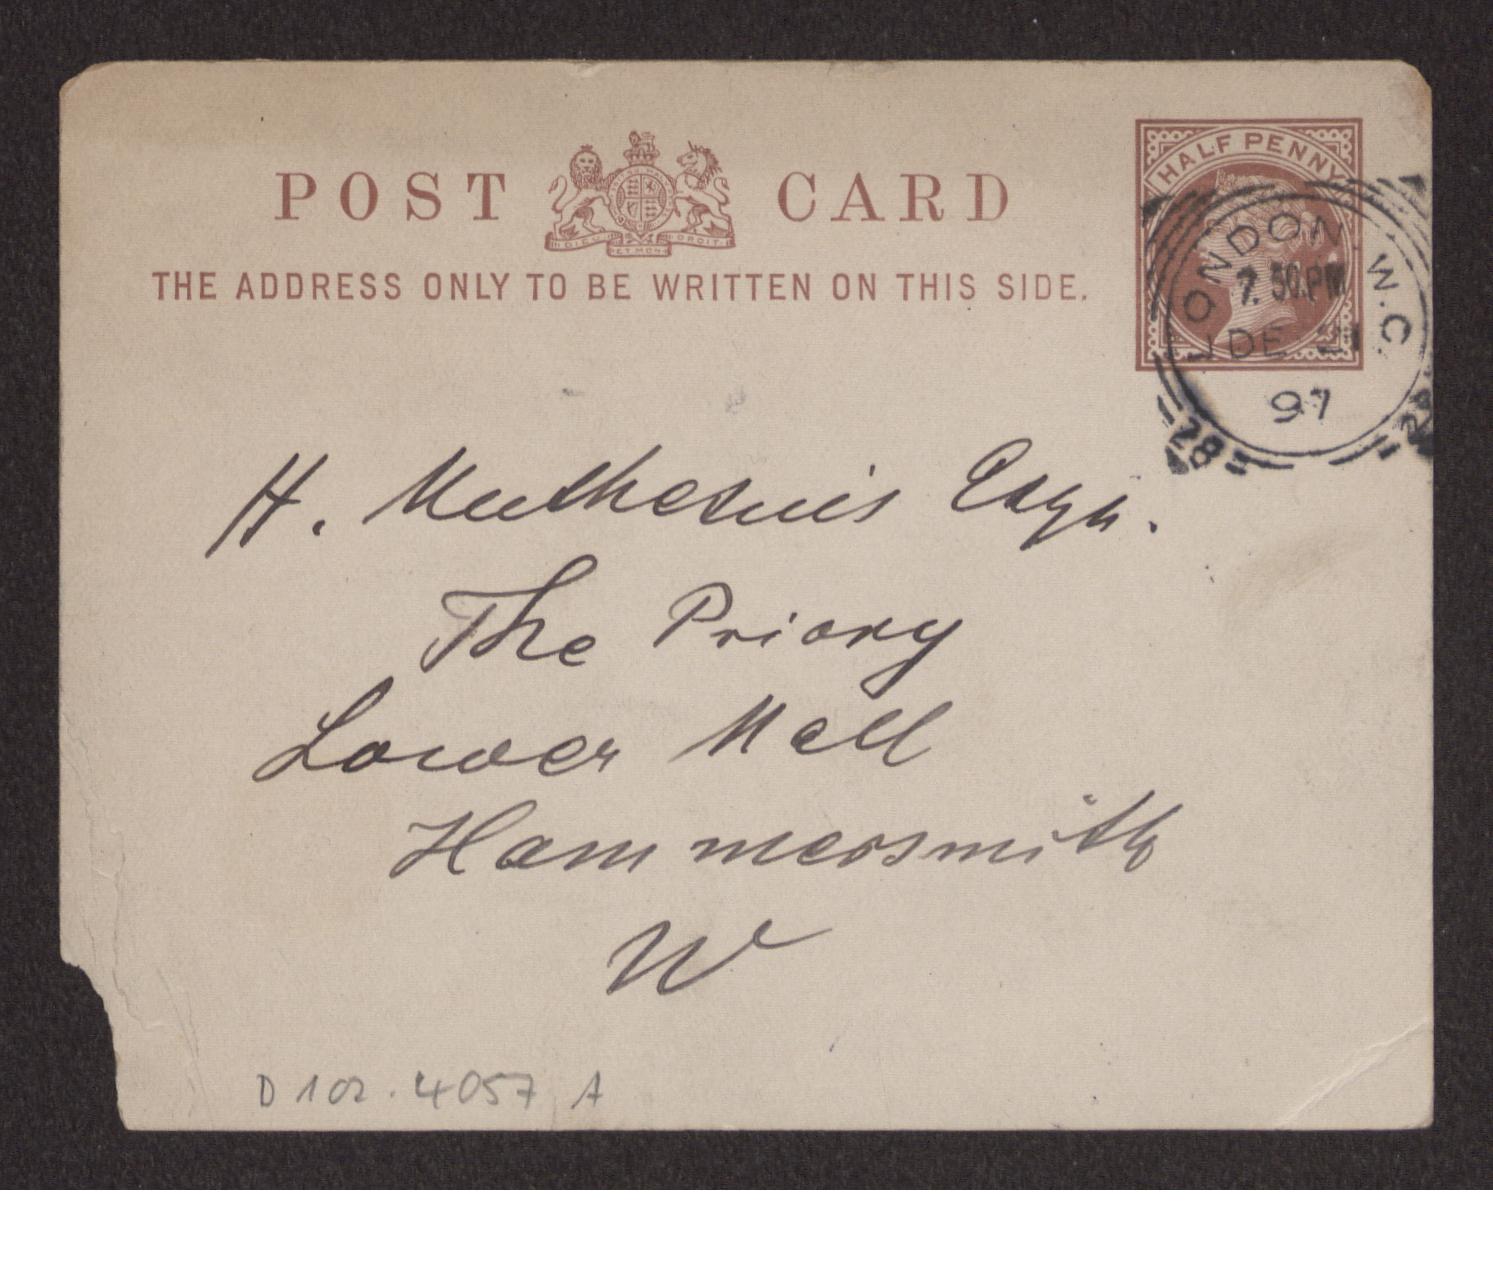 POST CARD
DIEU ET MON DROIT
THE ADDRESS ONLY TO BE WRITTEN ON THIS SIDE.
HALF PENNY
LONDON. W.C.
7. 50.PM
DE 21
97
28 28
H. Muthesius Esqu.
The Priory
Lower Mall
Hammersmith
W
D 102. 4057 A